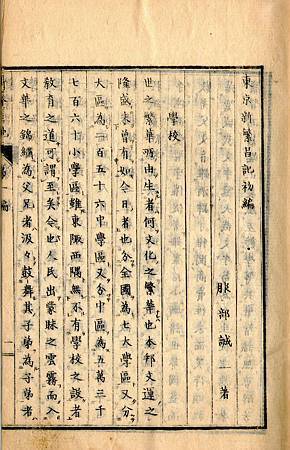 東京新繁昌記初編
服部誠一著
學校
世之繁華所由生者何文化之繁華也本邦文運之
隆盛未曾有如今日者也分全國為七大學區又分
大區為二百五十六中學區又分中區為五萬三千
七百六十小學區雖東陬西隅無不有學校之設者
教育之道可謂至矣令也人民出蒙昧之雲霧而入
文華之錦繡為父兄者汲々鼓舞其子弟為子弟者